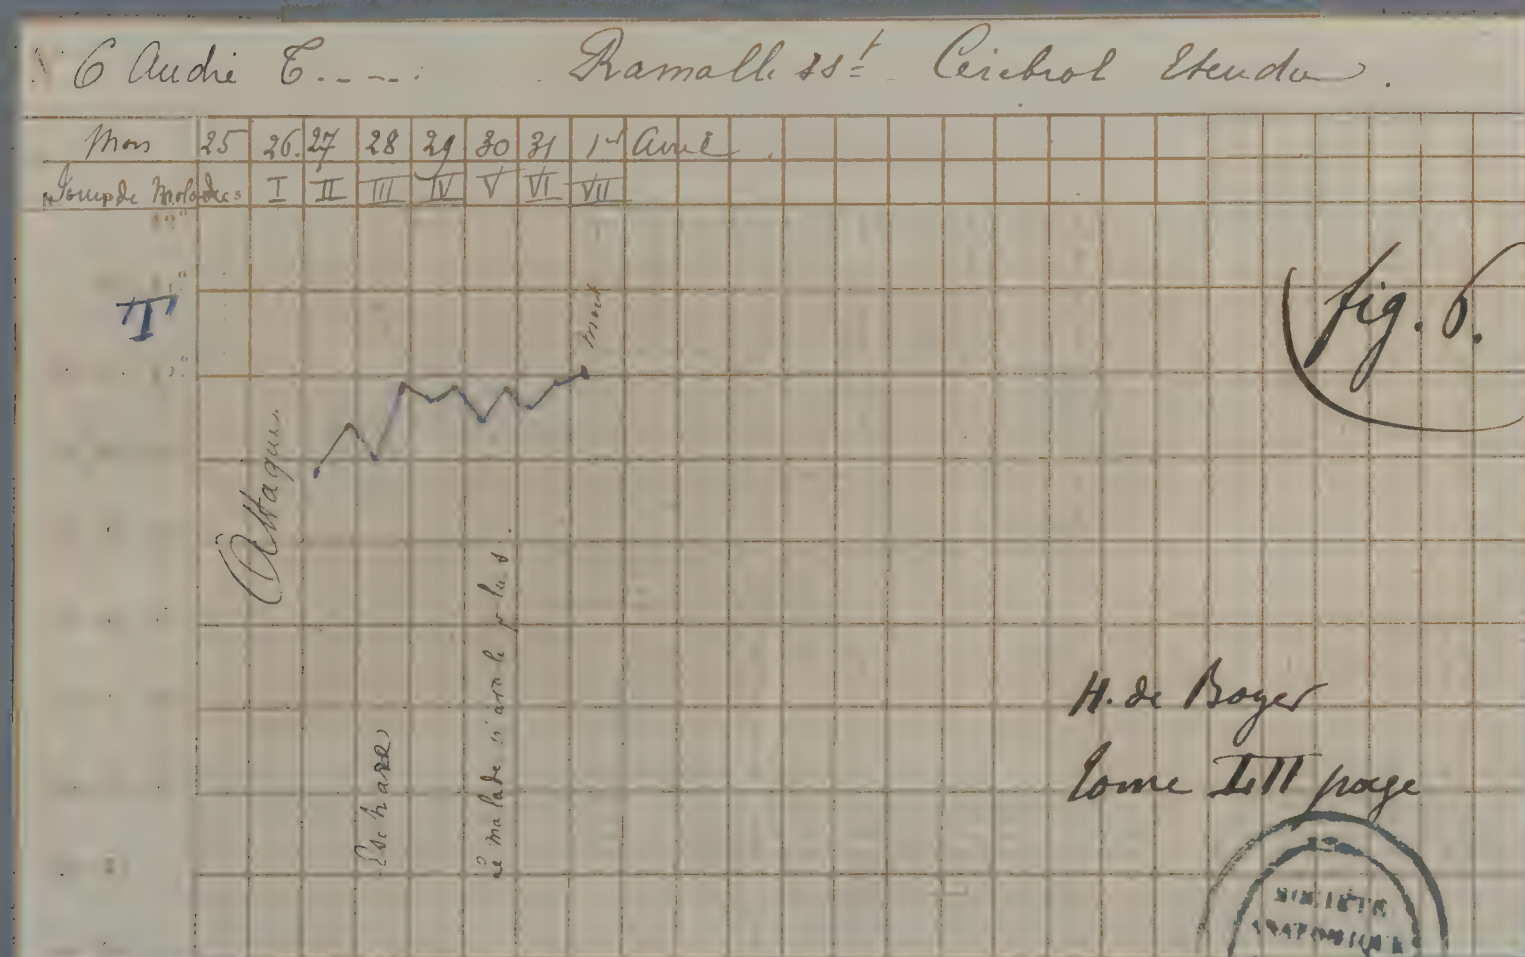 6 André T.....   Ramollisst Cérébral Etendu.
Mars 25 26. 27 28 29 30 31 1er Avril
Jours de Maladies I II III IV V VI VII
T
mort
fig. 6.
Attaque
Le malade n'avale plus.
Eschare
H. de Boyer
tome LIII page
SOCIÉTÉ
ANATOMIQUE